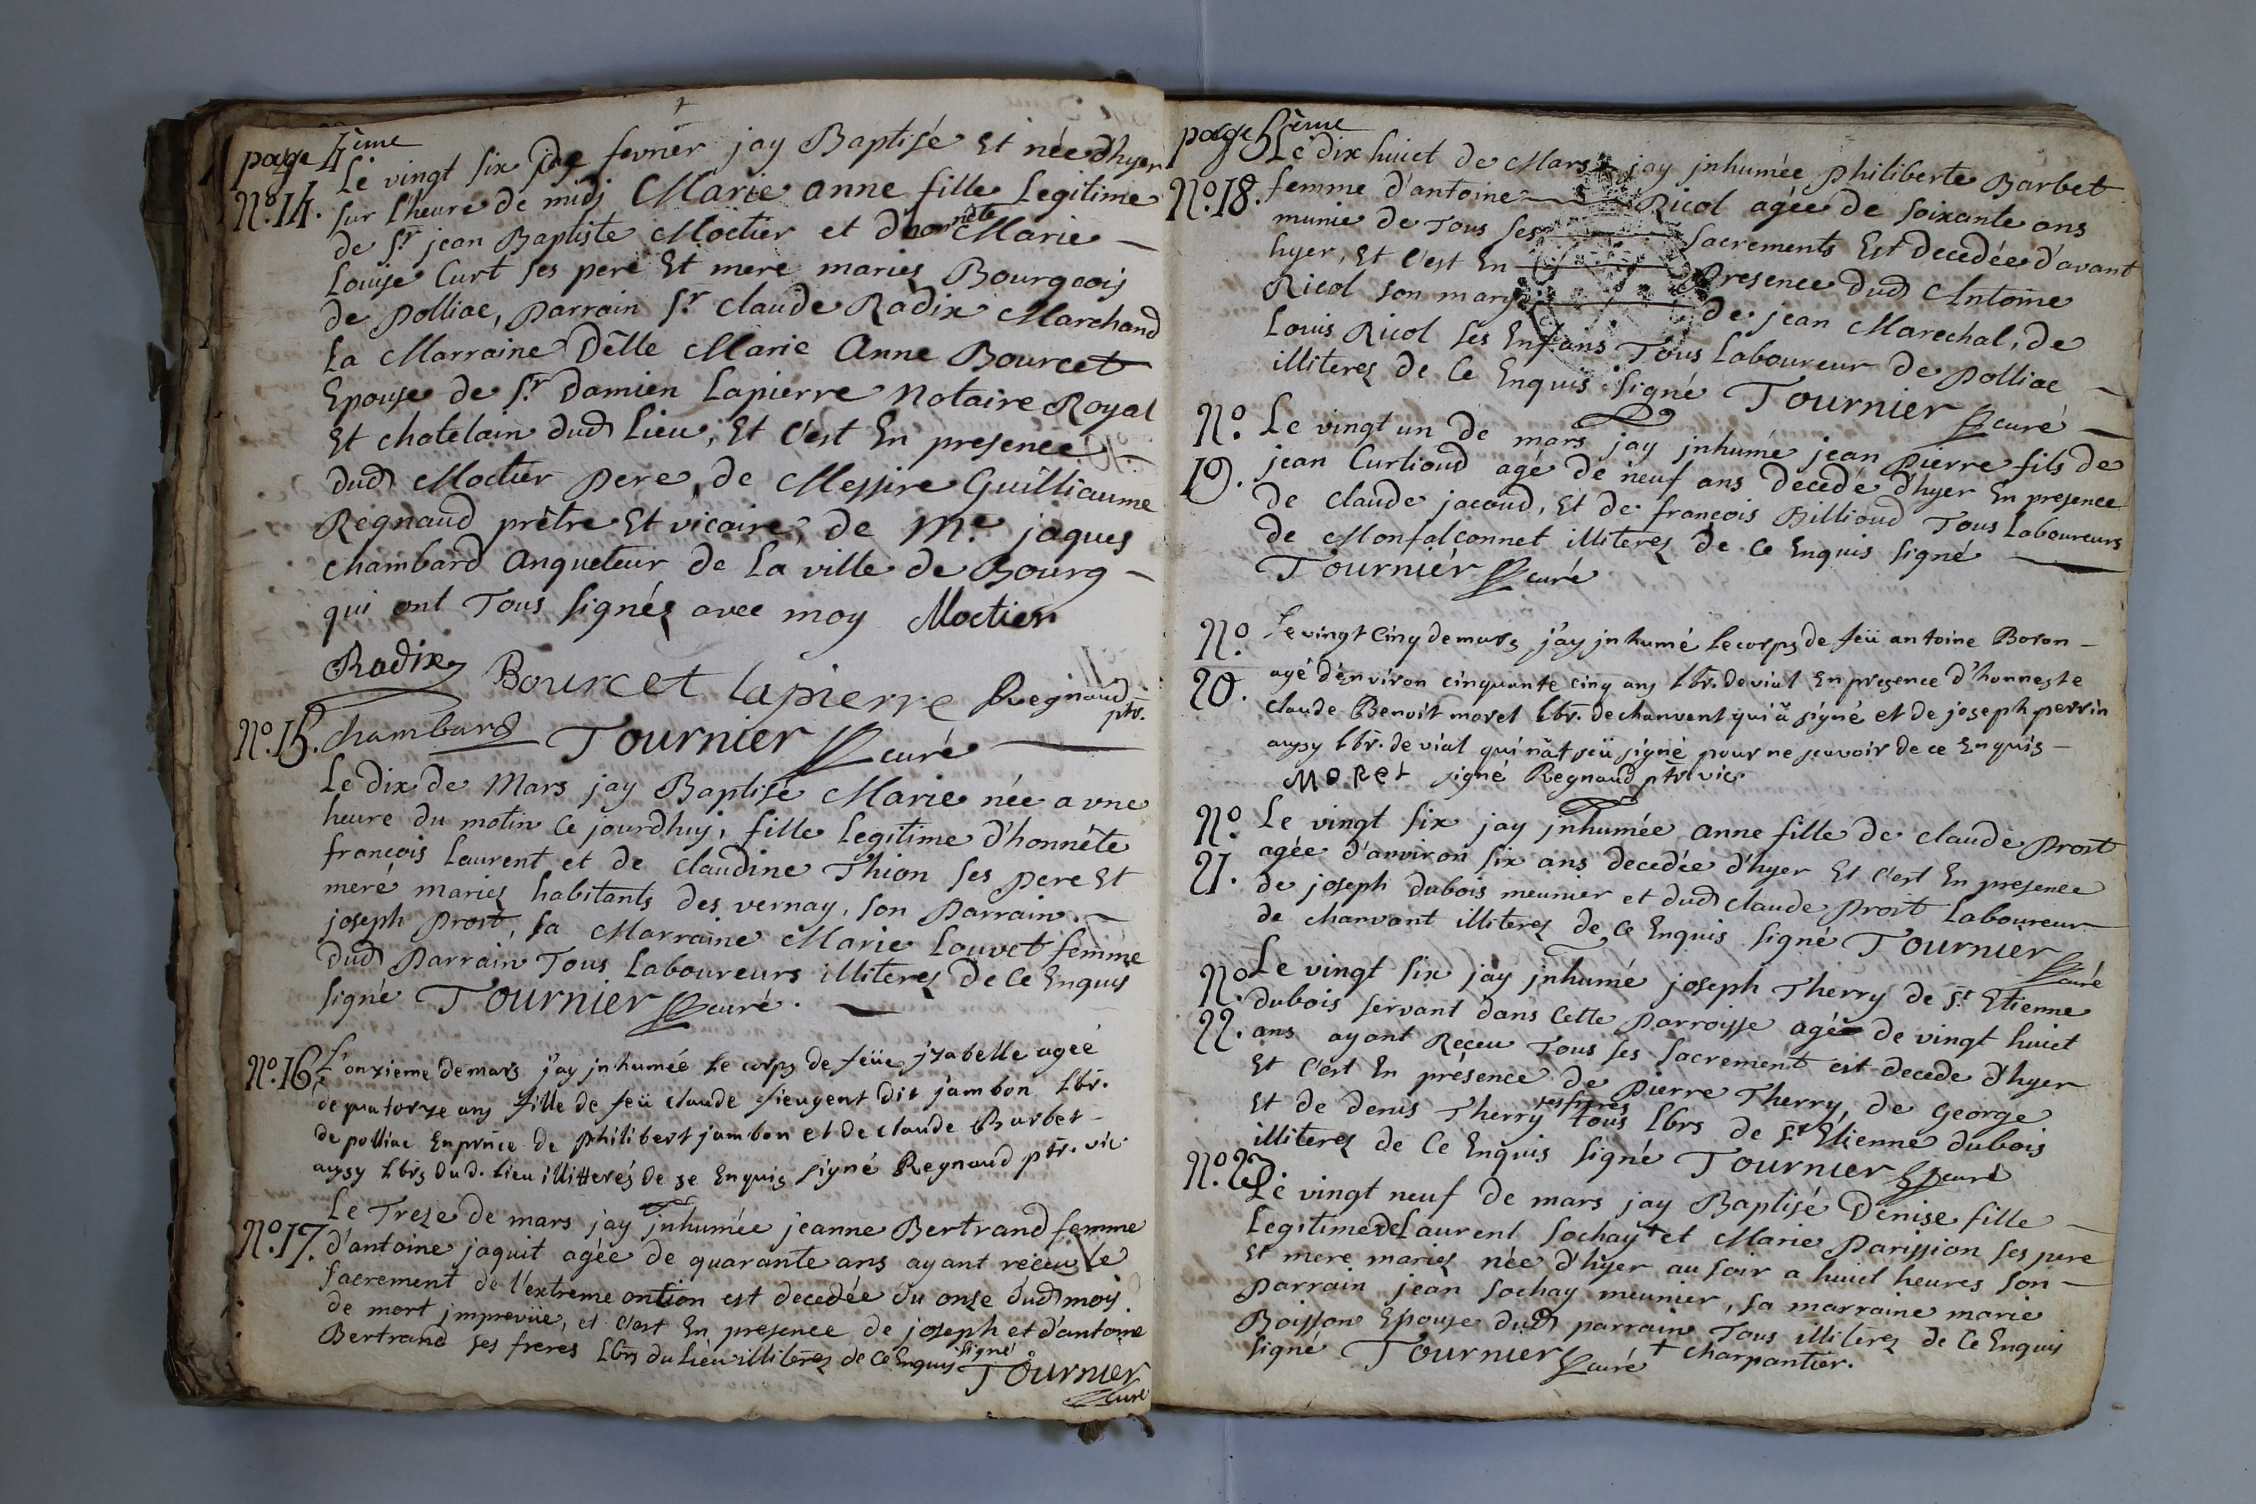 page 4ième
Le vingt six fevrier jay Baptisé Et née d'hyer
N.º 14. sur l'heure de midj Marie anne fille Legitime
de S.r jean Baptiste Moctier et d'honnéte Marie
Louise Curt ses pere Et mere mariés Bourgeois
de Polliac, Parrain S.r claude Radix Marchand
La Marraine Delle Marie Anne Bourcet
Epouse de S.r Damien Lapierre Notaire Royal
Et chatelain dud Lieu, Et c'est En presence
dud Moctier Pere, de Messire Guilliaume
Regnaud prêtre Et vicaire, de M.e jaques
chambard Anqueteur de La ville de Bourg
qui ont Tous signéz avec moy Moctier
Radix Bourcet lapierre Regnaud ptr.
N.º 15. chambard Tournier curé
Le dix de Mars jay Baptisé Marie née a vne
heure du matin Ce jourdhuj, fille Legitime d'honnéte
francois Laurent et de claudine Thion ses Pere Et
mere mariez habitants des vernay, son Parrain
joseph Prost, sa Marraine Marie Louvet femme
dud Parrain Tous Laboureurs illiterez de Ce Enquis
signé Tournier curé.
N.º 16. L'onzieme de mars j'ay jnhumée le corps de feüe jzabelle agée
de quatorze ans fille de feü claude sieugent dit jambon Lbr.
de polliac En prnce de philibert jambon et de claude Barbet
aussy Lbrs dud. lieu illitterés de se Enquis signé Regnaud ptr. vic
Le Treze de mars jay jnhumée jeanne Bertrand femme
N.º 17. d'antoine jaquit agée de quarante ans ayant réceu Le
sacrement de l'extreme ontion est decedée du onze dud mois
de mort jmprevüe, et c'est En presence de joseph et d'antoine
Bertrand ses freres Lbrs du Lieu illiterez de Ce Enquis signé
Tournier
curé
page 5ième
Le dix huict de Mars jay jnhumée Philiberte Barbet
N.º 18. femme d'antoine Ricol agée de soixante ans
munie de Tous ses sacrements Est decedée d'avant
hyer, Et c'est En Presence dud Antoine
Ricol son mary de jean Marechal, de
Louis Ricol ses Enfans Tous Laboureur de Polliac
illiterez de Ce Enquis signé Tournier curé
N.º Le vingt un de mars jay jnhumé jean Pierre fils de
19. jean Curlioud agé de neuf ans decedé d'hyer En presence
de claude jacoud, Et de francois Billioud Tous Laboureurs
de Monfalconnet illiterez de Ce Enquis signé
Tournier curé
N.º Le vingt Cinq de mars j'ay jnhumé le corps de feü antoine Boron
20. agé d'environ cinquante cinq ans Lbr. de vial En presence d'honneste
claude Benoit morel Lbr. de chanvent qui a signé et de joseph perrin
aussy Lbr. de vial qui n'at seü signé pour ne scavoir de ce Enquis
MoRel signé Regnaud ptr vic
N.º Le vingt six jay jnhumée anne fille de claude Prost
21. agée d'anviron six ans decedée d'hyer Et c'est En presence
de joseph dubois meunier et dud claude Prost Laboureur
de charvant illiterez de Ce Enquis signé Tournier curé
N.º Le vingt six jay jnhumé joseph Therry de S.t Etienne
dubois servant dans Cette Parroisse agé de vingt huict
22. ans ayant Réceu Tous ses sacrement est decede d'hyer
Et c'est En présence de Pierre Therry, de George
Et de denis Therry ses freres tous Lbrs de S.t Etienne dubois
illiterez de Ce Enquis signé Tournier curé
N.º 23. Le vingt neuf de mars jay Baptisé Denise fille
Legitime de Laurent sochay + et Marie Parission ses pere
Et mere mariez née d'hyer au soir a huict heures son
Parrain jean sochay meunier, sa marraine marie
Boisson Epouse dud parrain Tous illiterez de Ce Enquis
signé Tournier curé + charpantier.